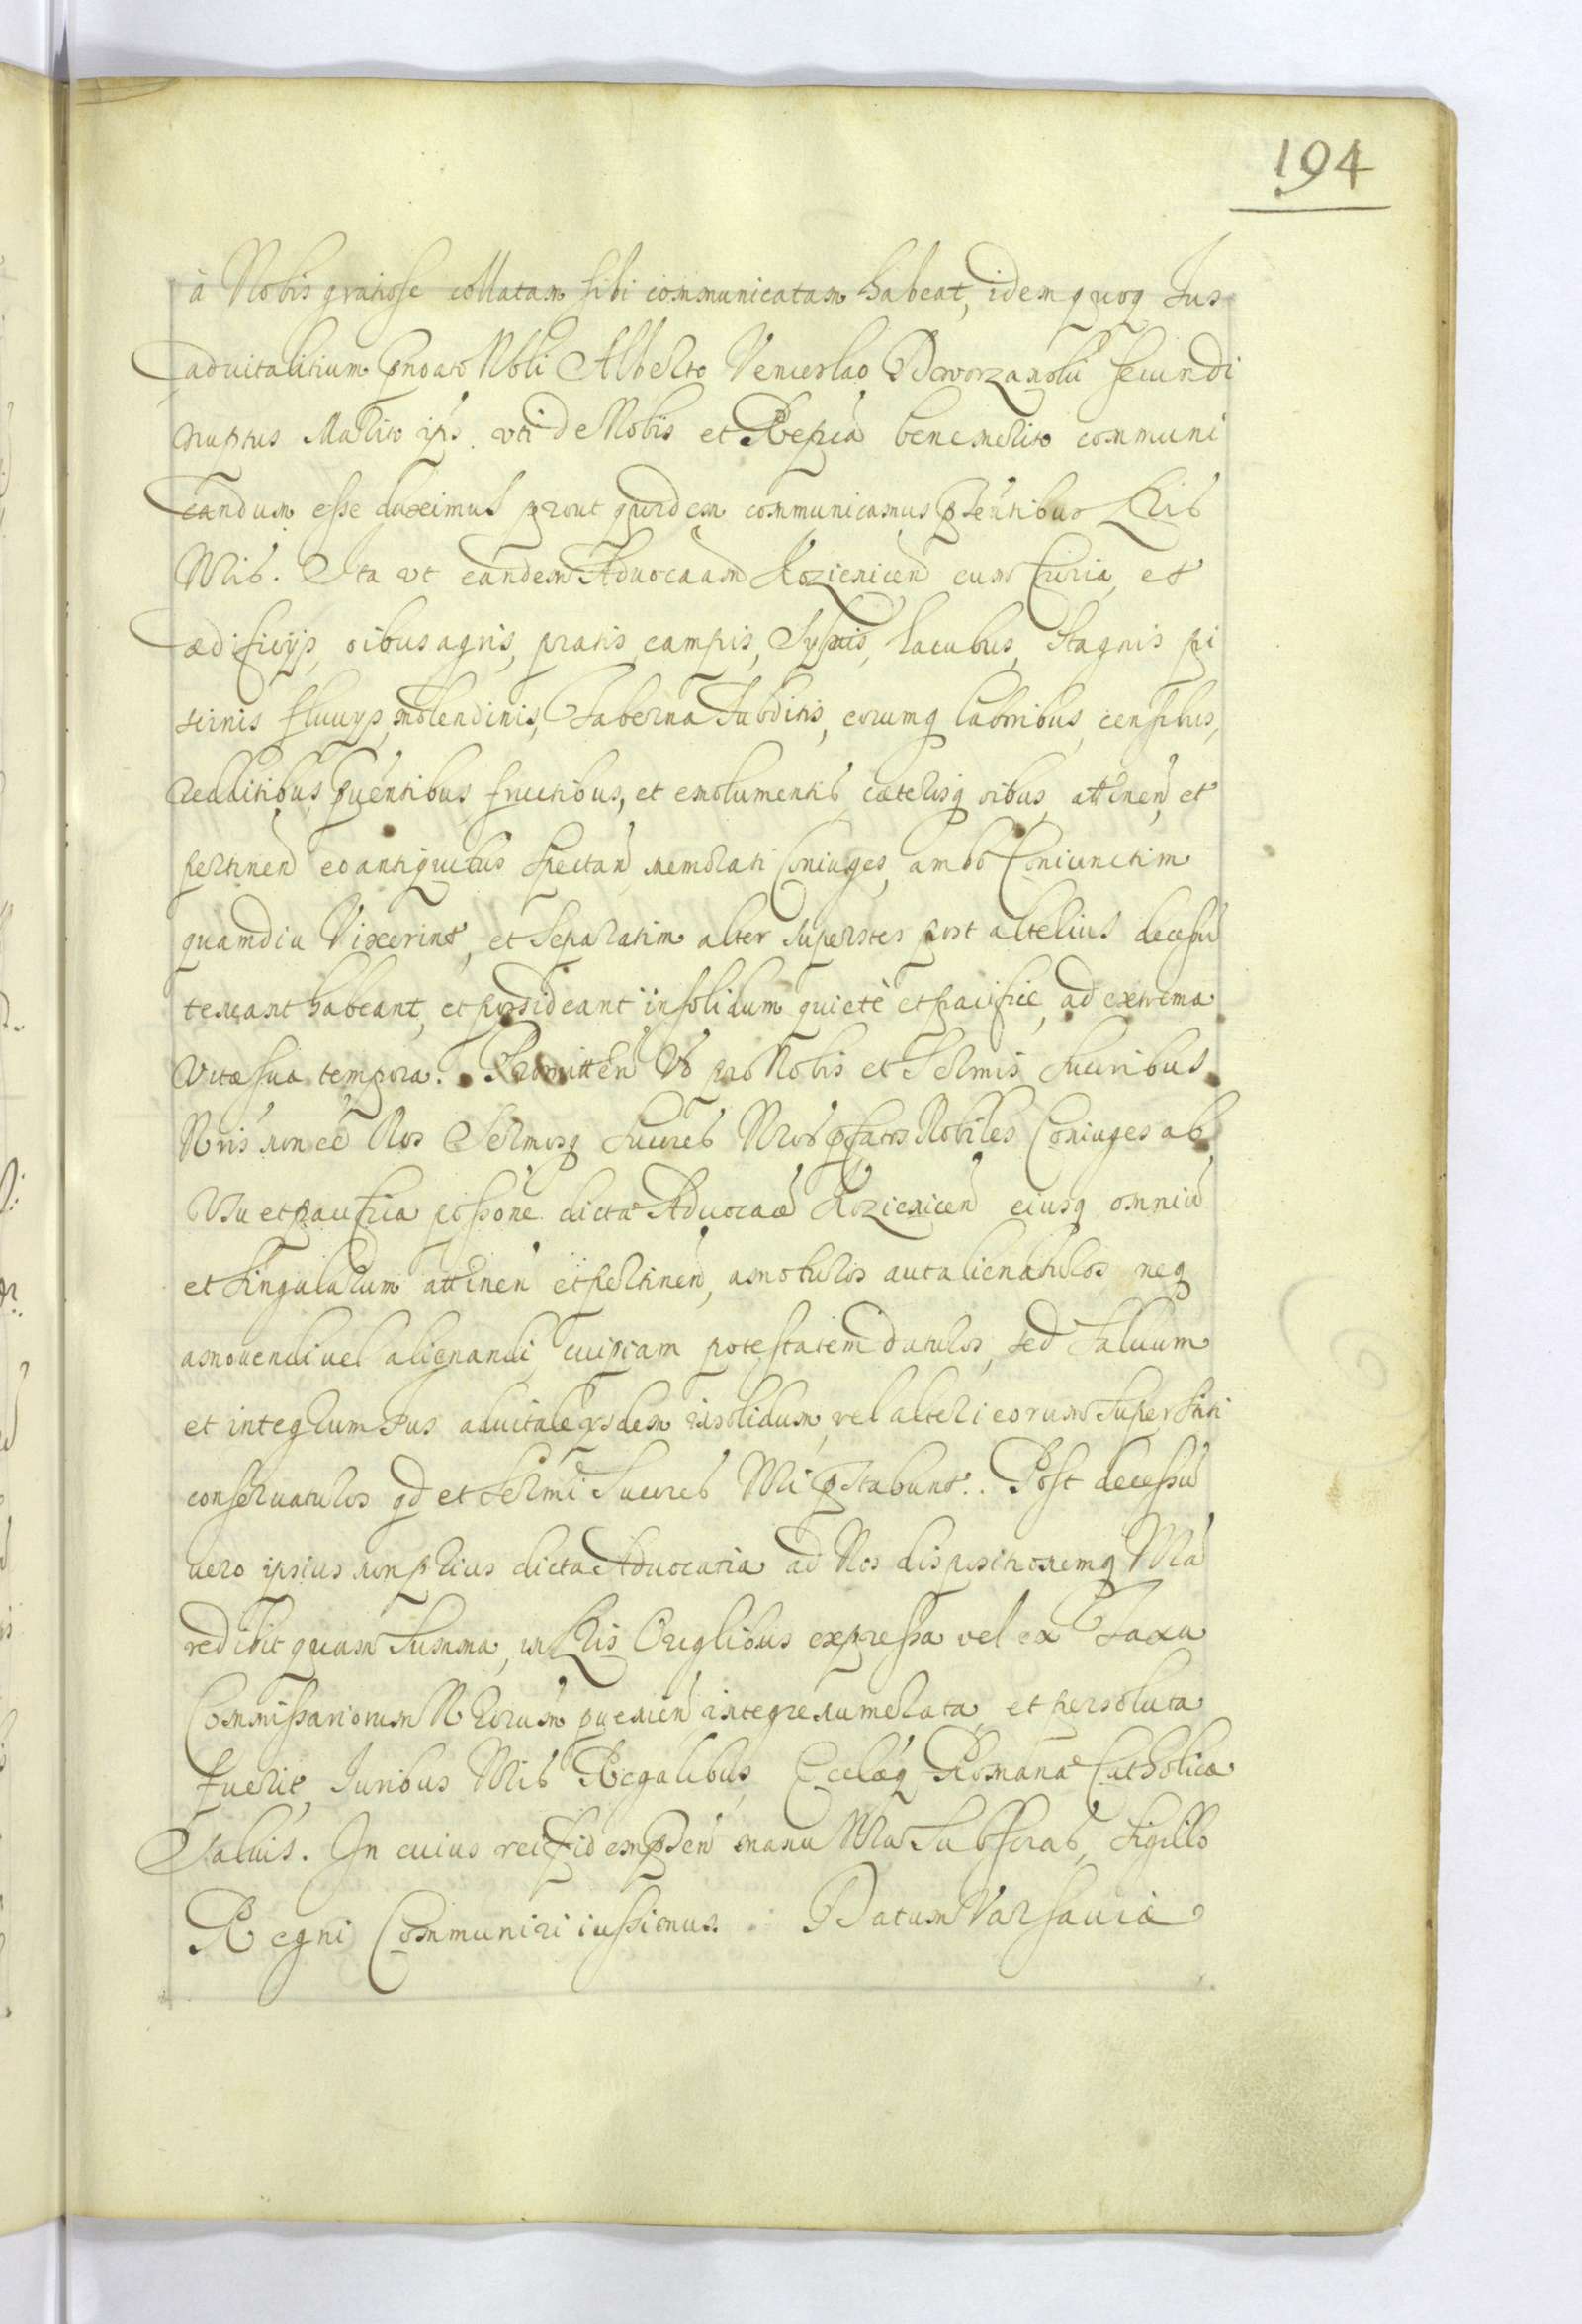 194
à Nobis gratiose collatam sibi communicatam habeat, idem quoq Jus
aduitalitium pnoato Nobli Alberto Venceslao Dworzanski secundi
nuptus Marito ips. uti de Nobis et Repca benemerito communi
candum esse duximus prout quidem communicamus pntibus Lris
Nris. Ita ut eandem Aduocaam Kozienicen cum Curia, et
ædificijs, oibus agris, pratis, campis, Syluis, Lacubus, Stagnis pi
scinis fluuijs, molendinis, Taberna Subditis, eorumq laboribus, censibus,
redditibus puentibus fructibus, et emolumentis cæterisq oibus attinen et
pertinen eo antiquitus spectan memorati Coniuges, ambo Coniunctim
quamdiu Vixerint, et Separatim alter superstes post alterius decessu
teneant habeant, et possideant insolidum quietè et pacifice, ad extrema
vitæ sua tempora. Promitten Vo pro Nobis et Sermis Succribus
Nris non ee Nos Sermosq Succres Nros pfatos Nobiles Coniuges ab
Vsu et pacifica possone dicta Aduocaæ Kozienicen eiusq omniu
et singularum attinen et pertinen, amoturos aut alienaturos neq
amouendi uel alienandi cuipiam potestatem daturos, sed Saluum
et integrum Jus aduitale ysdem insolidum, vel alteri eorum Superstiti
conseruaturos qd et Sermi Succres Nri pstabunt. Post decessu
uero ipsius dicta Aduocatia ad Nos dispositionemq Nra
redibit quam Summa, in Lris Origlibus expressa vel ex Taxa
Commissariorum Nrorum puenien integre numerata et persoluta
fuerit, Juribus Nris Regalibus, Ecclæq Romana Catholica
Saluis. In cuius rei fidem psen manu Nra Subscras, Sigillo
Regni Communiri iussimus. Datum Varsauiæ